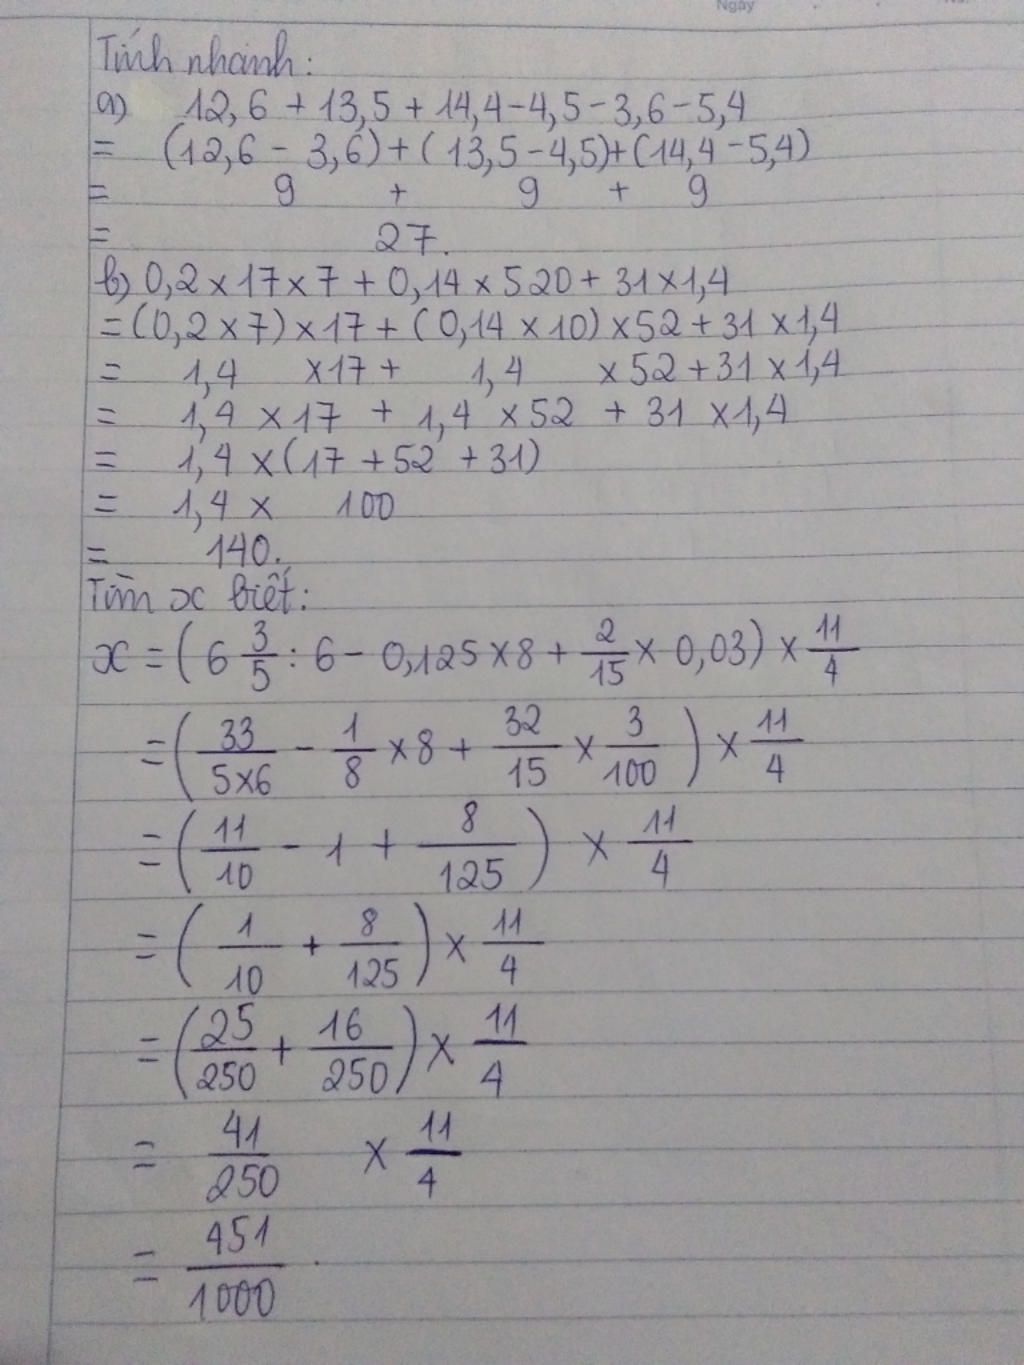 Ngày
Tính nhanh:
a) 12,6 + 13,5 + 14,4 - 4,5 - 3,6 - 5,4
= (12,6 - 3,6) + (13,5 - 4,5) + (14,4 - 5,4)
= 9 + 9 + 9
= 27.
b) 0,2 x 17 x 7 + 0,14 x 520 + 31 x 1,4
= (0,2 x 7) x 17 + (0,14 x 10) x 52 + 31 x 1,4
= 1,4 x 17 + 1,4 x 52 + 31 x 1,4
= 1,4 x 17 + 1,4 x 52 + 31 x 1,4
= 1,4 x (17 + 52 + 31)
= 1,4 x 100
= 140.
Tìm x biết:
x = (6 3/5 : 6 - 0,125 x 8 + 2/15 x 0,03) x 11/4
= (33/5x6 - 1/8 x 8 + 32/15 x 3/100) x 11/4
= (11/10 - 1 + 8/125) x 11/4
= (1/10 + 8/125) x 11/4
= (25/250 + 16/250) x 11/4
= 41/250 x 11/4
= 451/1000.